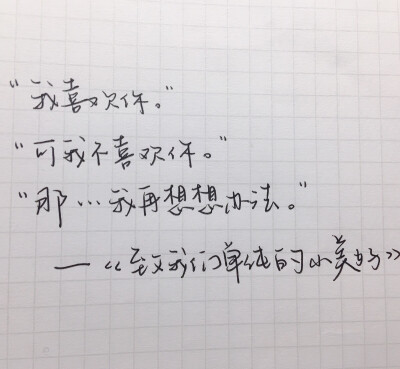 “我喜欢你。”
“可我不喜欢你。”
“那…我再想想办法。”
—《致我们单纯的小美好》